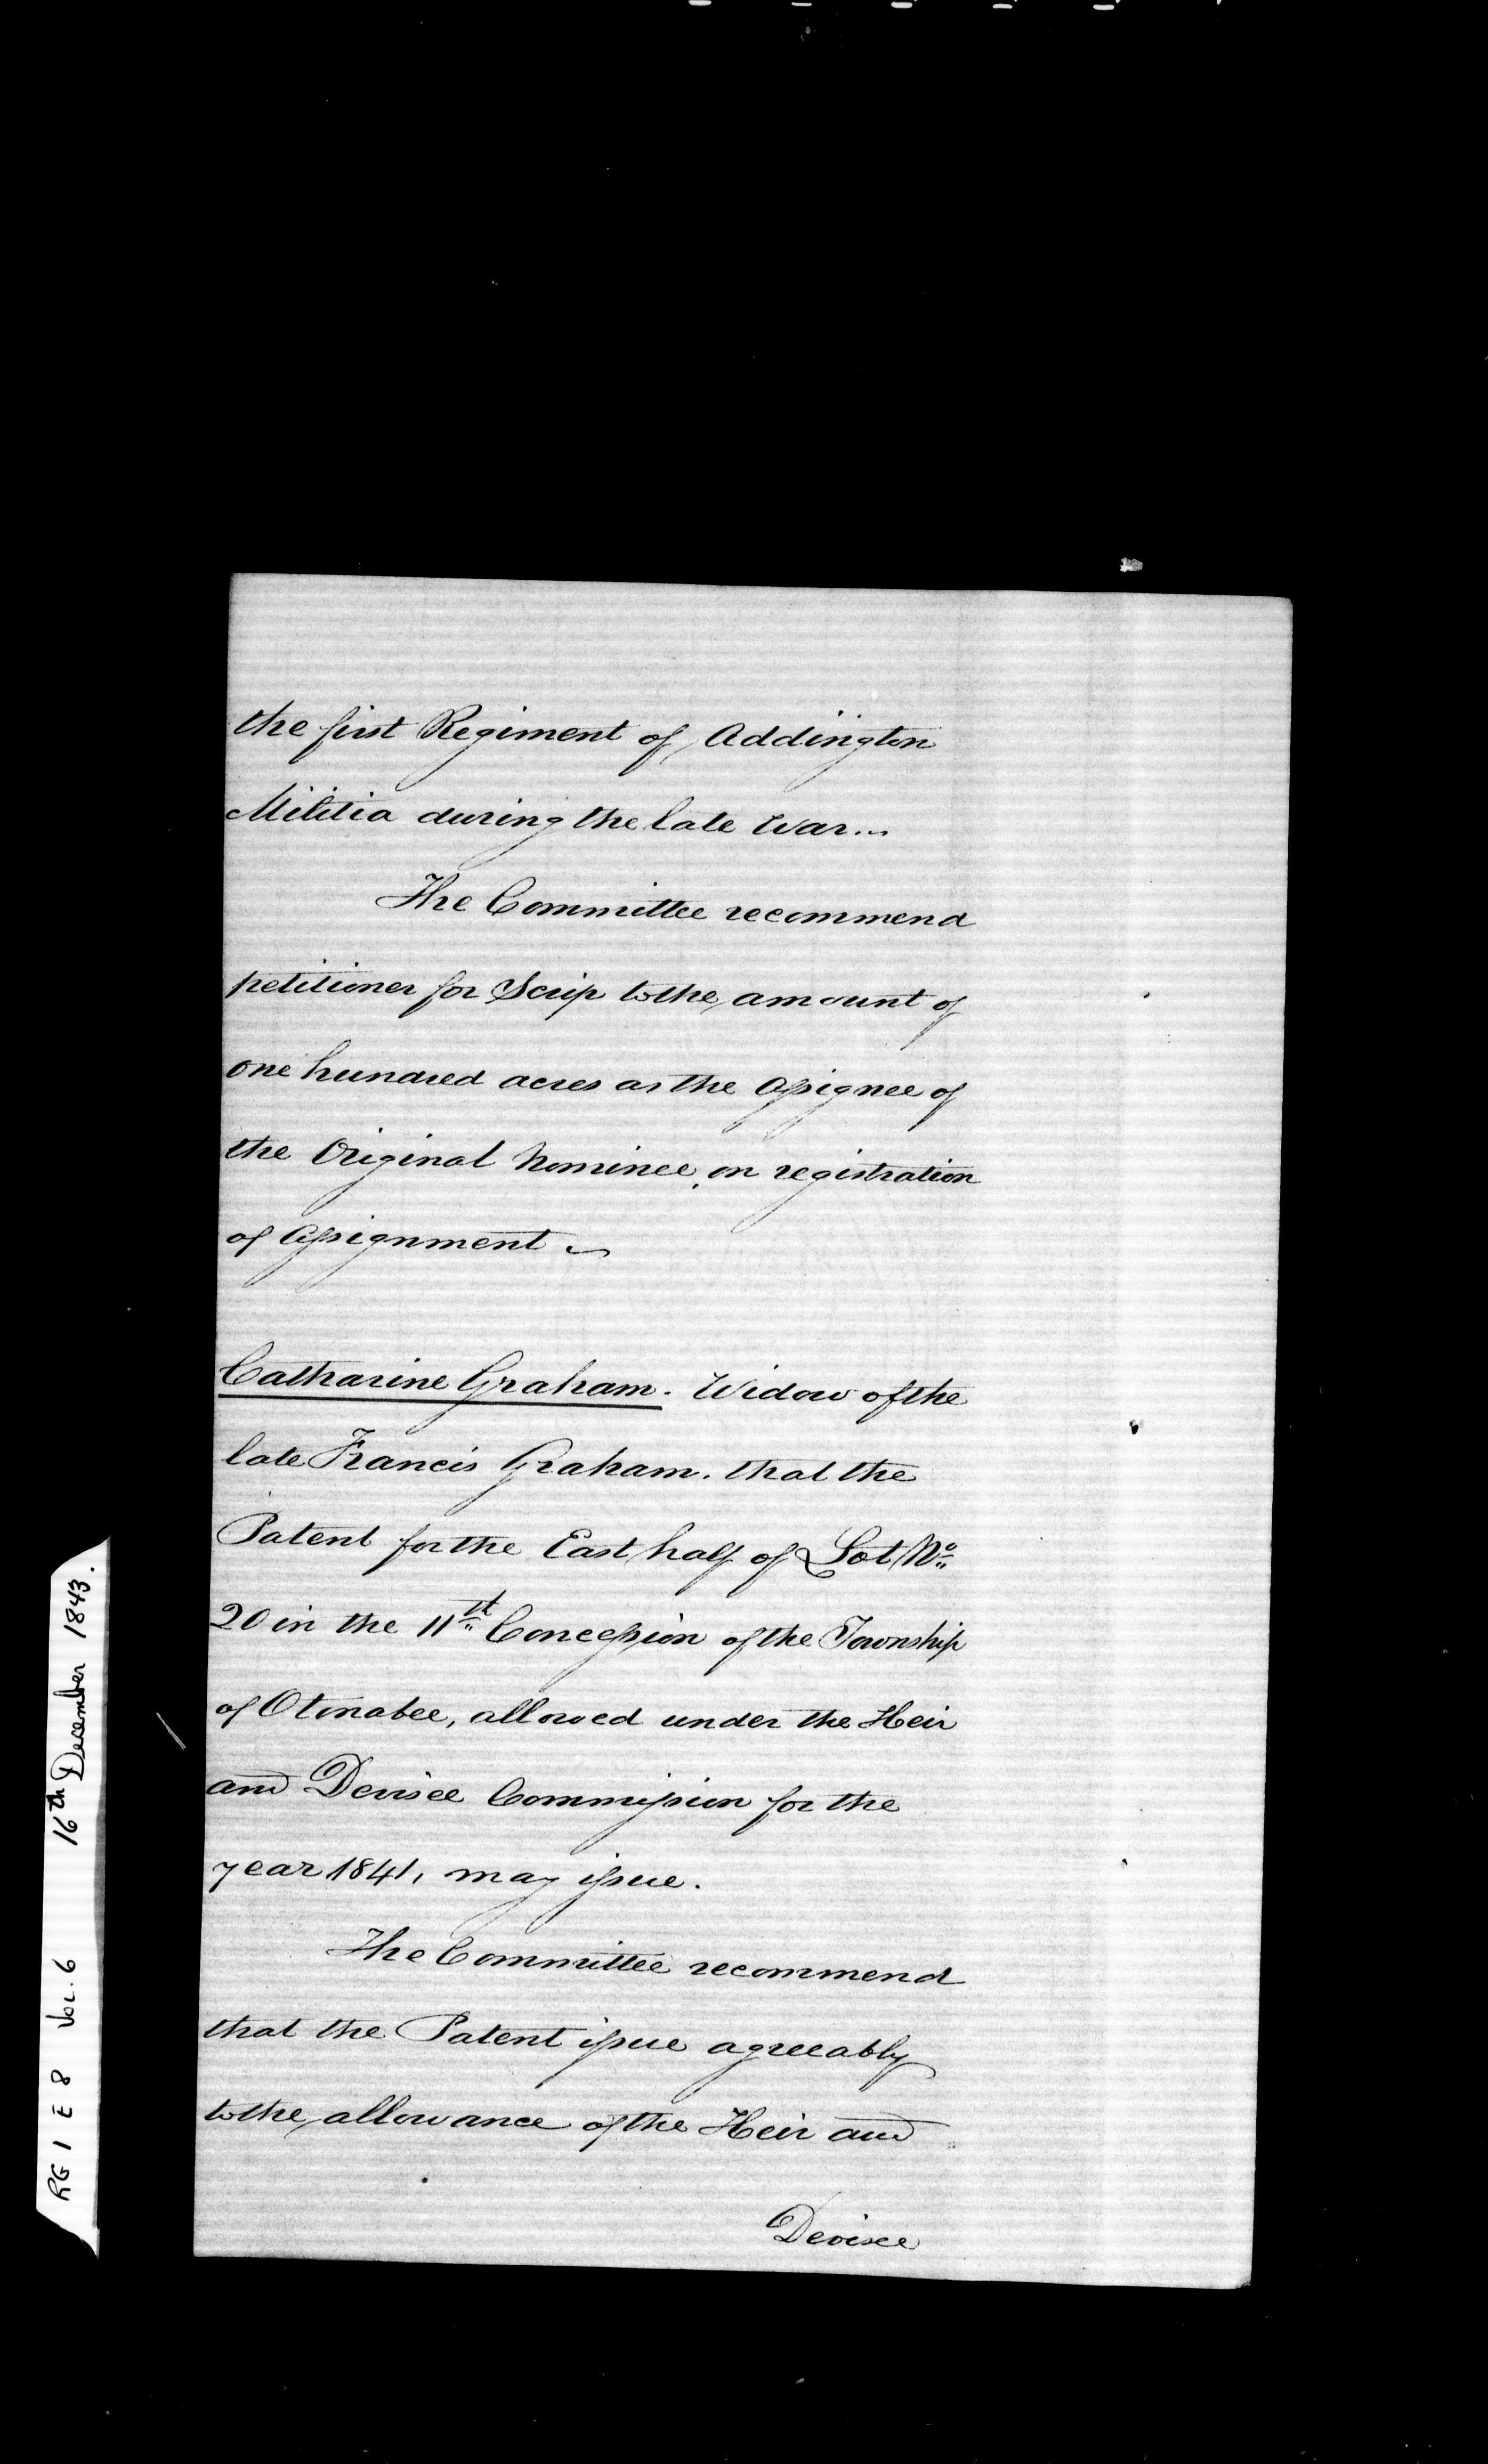 the first Regiment of Addington
Militia during the late War...
The Committee recommend
petitioner for Scrip to the amount of
one hundred acres as the Assignee of
the Original Nominee, on registration
of Assignment
Catharine Graham. Widow of the
late Francis Graham. that the
Patent for the East half of Lot No.
20 in the 11st Concession of the Township
of Otonabee, allowed under the Heir
and Devisee Commission for the
year 1841, may issue.
The Committee recommend
that the Patent issue agreeably
to the allowance of the Heir and
Devisee
RG 1 E 8 Vol. 6 16th December 1843.